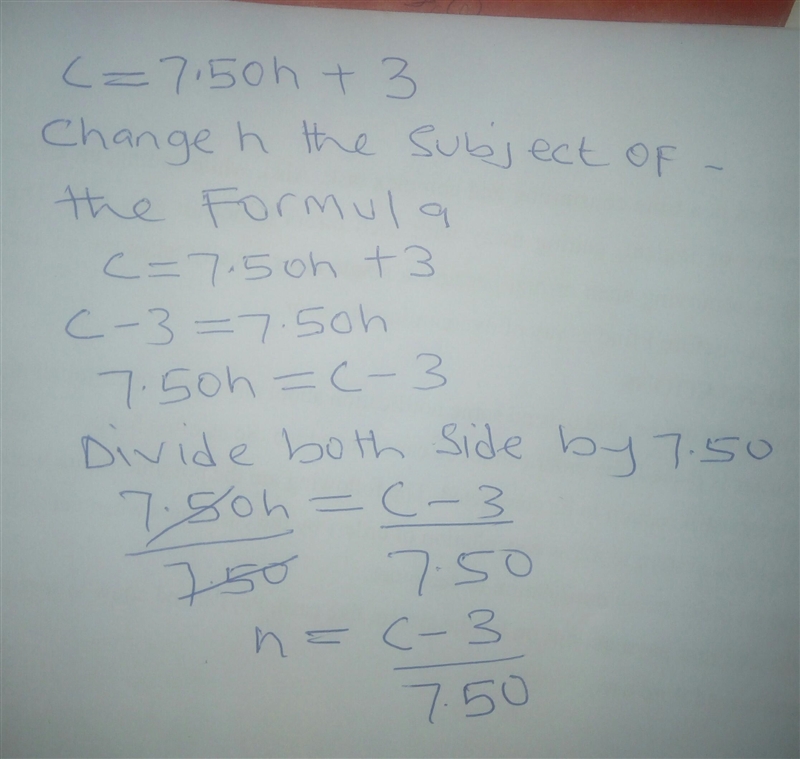 C=7.50h + 3
Change h the subject OF -
the Formula
C=7.50h +3
C-3 =7.50h
7.50h =C- 3
Divide both Side by 7.50
7.50h = C-3
7.50 7.50
h = C-3
7.50